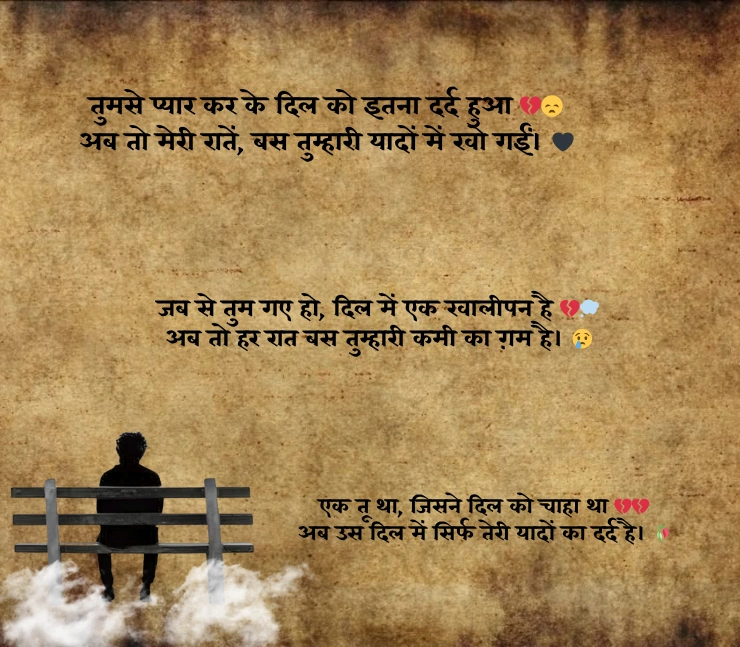 तुमसे प्यार कर के दिल को इतना दर्द हुआ 💔😞
अब तो मेरी रातें, बस तुम्हारी यादों में खो गईं। 🖤
जब से तुम गए हो, दिल में एक खालीपन है 💔💭
अब तो हर रात बस तुम्हारी कमी का ग़म है। 😢
एक तू था, जिसने दिल को चाहा था 💔💔
अब उस दिल में सिर्फ तेरी यादों का दर्द है। 🥀